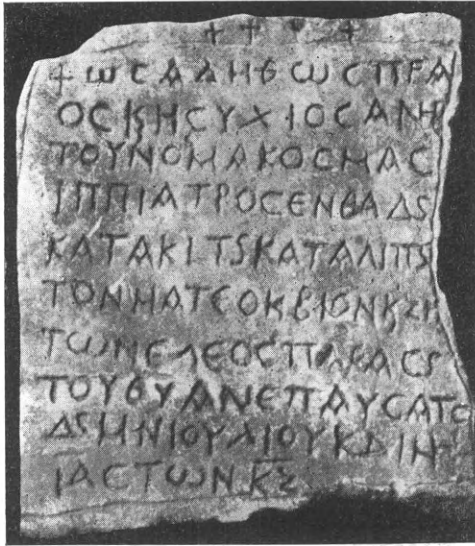 + + + +
+ ωϹΑΛΗΘωϹΠΡΑ
ΟϹΚΗϹΥΧΙΟϹΑΝΗ
ΤΟΥΝΟΜΑΚΟϹΜΑϹ
ΙΠΠΙΑΤΡΟϹΕΝΘΑΔS
ΚΑΤΑΚΙΤSΚΑΤΑΛΙΠS
ΤΟΝΜΑΤΕΟΚΒΙΟΝΚΖΗ
ΤωΝΕΛΕΟϹΠΑΚΑϹS
ΤΟΥΘΥΑΝΕΠΑΥϹΑΤΟ
ΔSΜΗΝΙΟΥΛΙΟΥΚΔΙΝ
ΙΑΕΤωΝΚΖ